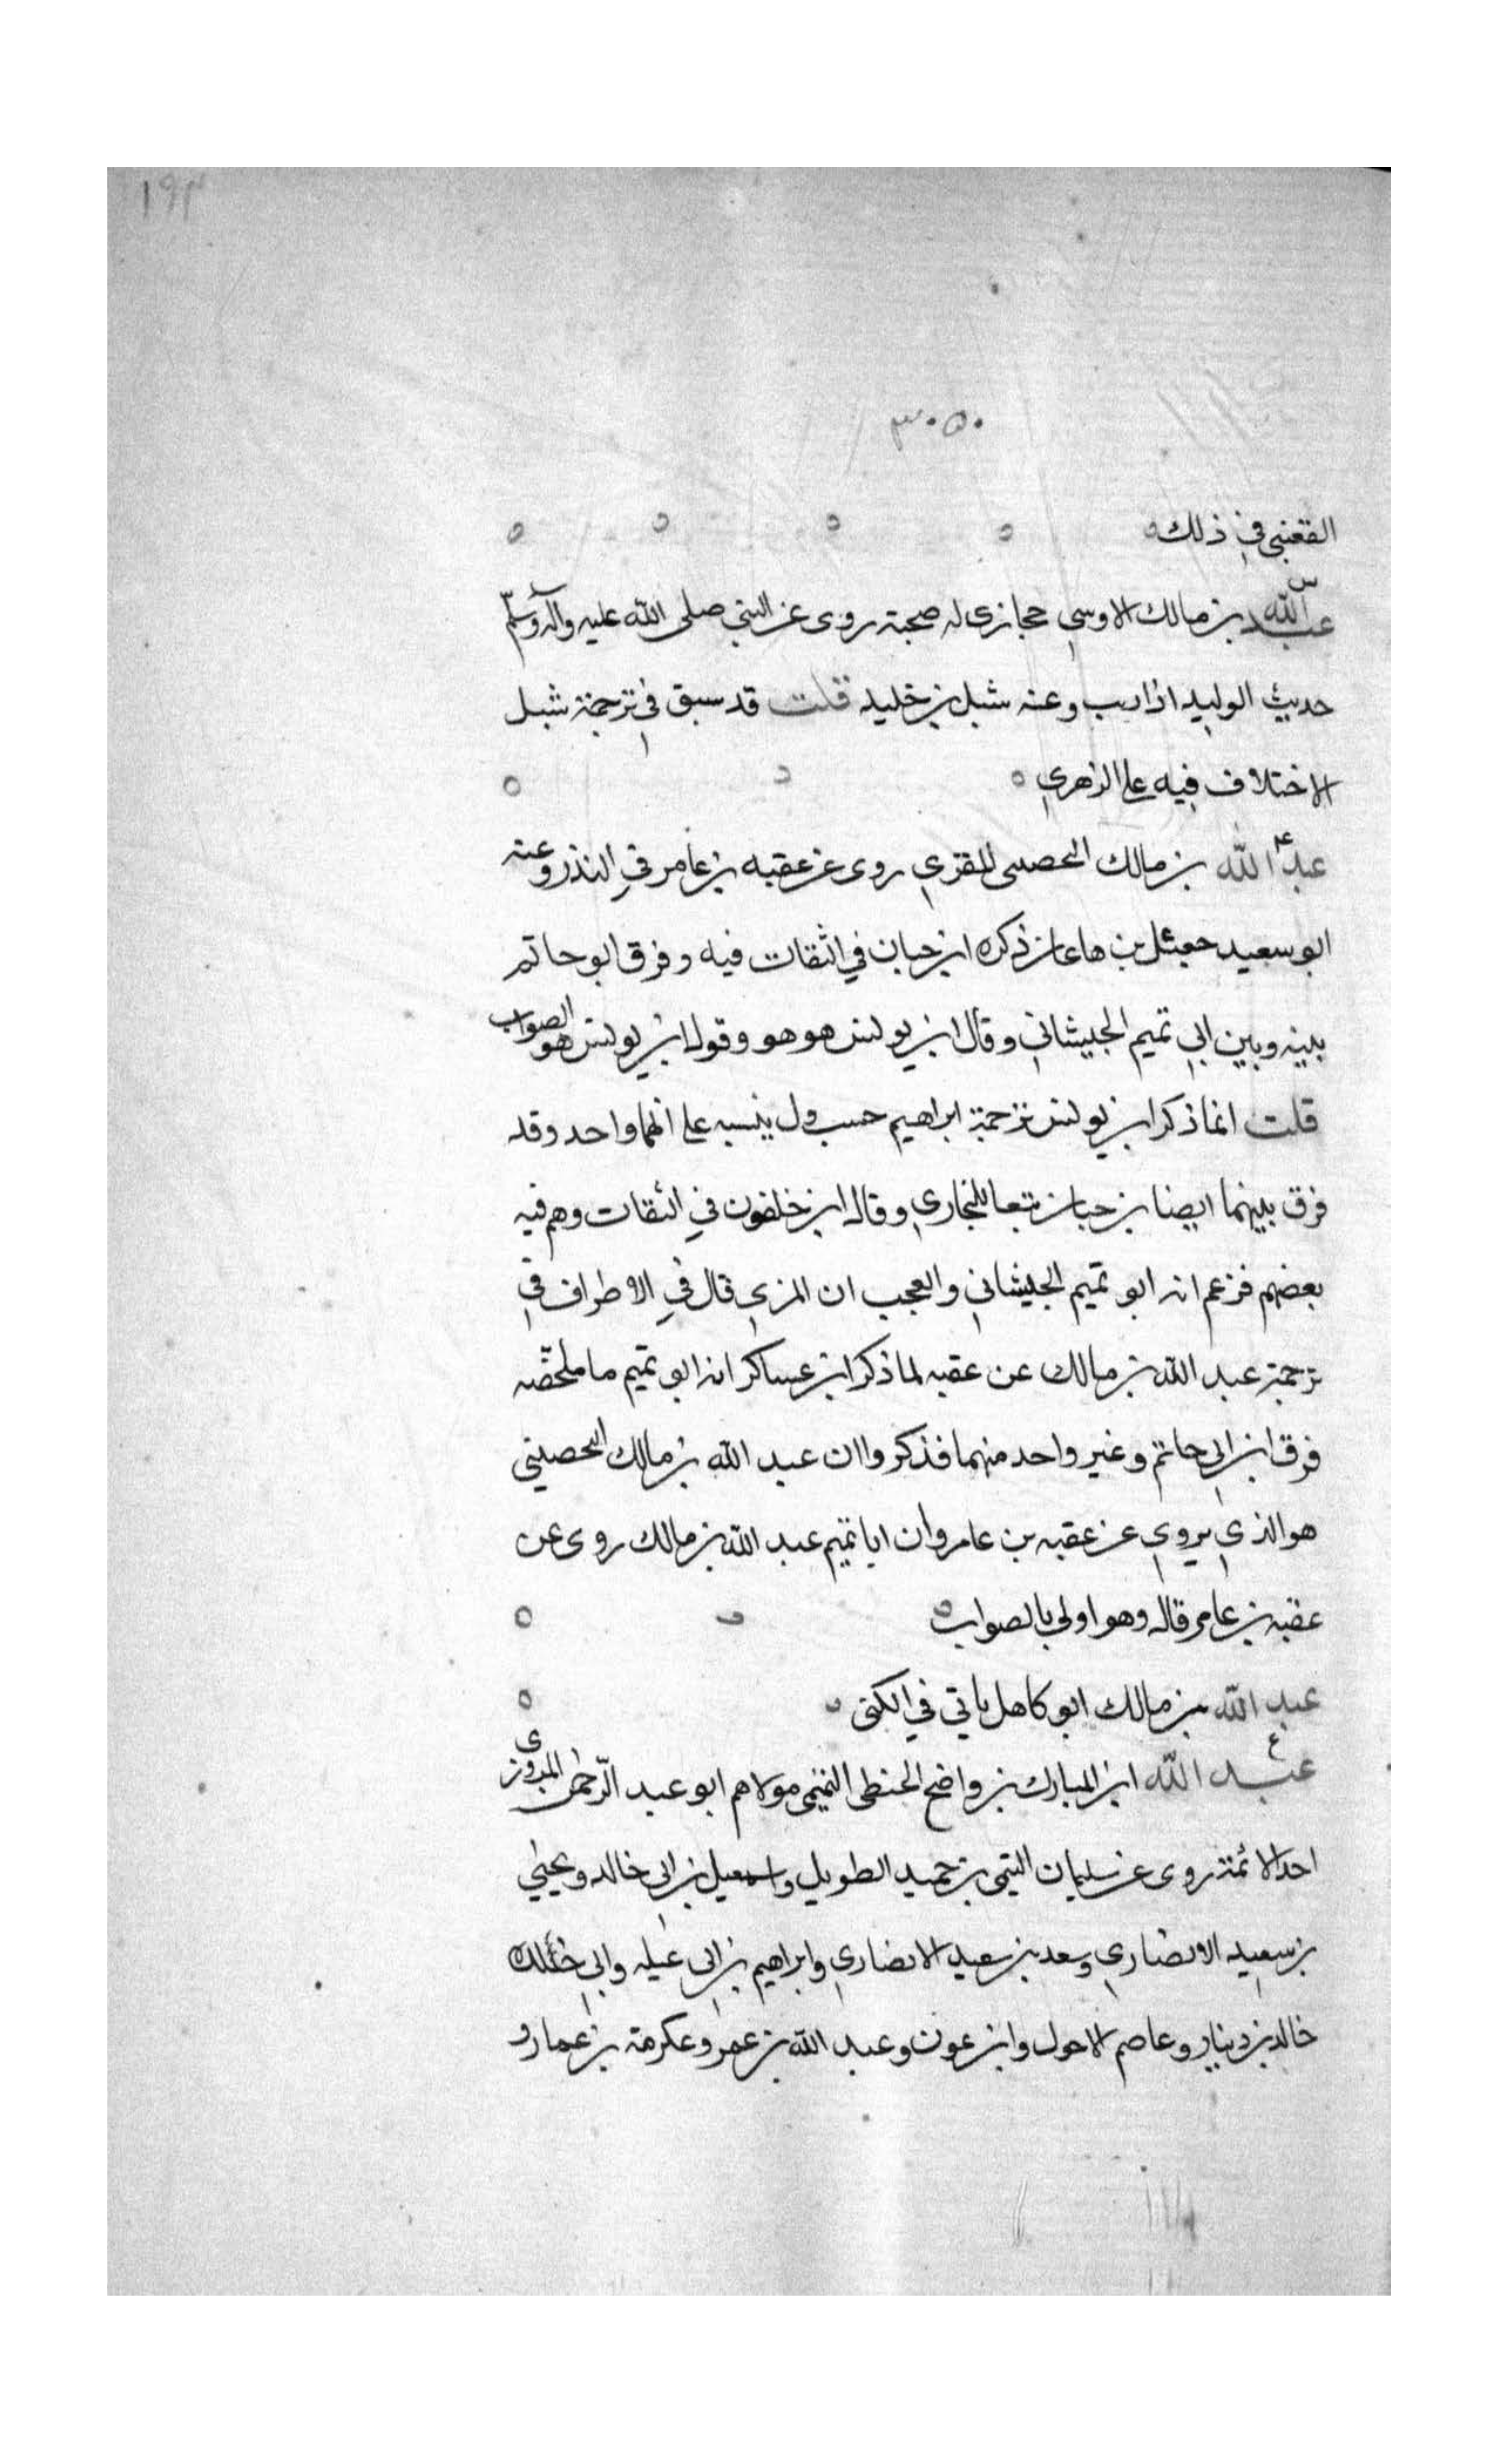 ١٩٣
٣٠٥٠
القعنبي في ذلك
س
عبد الله بن مالك الاوسي حجازى له صحبة روى عن النبي صلى الله عليه وآله وسلم
حديث الوليد اذا وعنه شبل بن خليد قلت قد سبق في ترجمة شبل
الاختلاف فيه على الزهري
عـ
عبد الله بن مالك اليحصبى المقرى روى عن عقبه بن عامر في النذر وعنه
ابو سعيد جعثل بن هاعان ذكره ابن حبان في الثقات فيه وفرق ابو حاتم
بينه وبين ابي تميم الجيشاني وقال ابن يونس هو هو وقول ابن يونس هو الصواب
قلت انما ذكر ابن يونس ترجمة ابراهيم حسب ول ينبه على انهما واحد وقد
فرق بينهما ايضا بن حبان تبعا للبخاري وقال ابن خلفون في الثقات وهم فيه
بعضهم فزعم انه ابو تميم الجيشاني والعجب ان المزي قال في الاطراف في
ترجمة عبد الله بن مالك عن عقبه لما ذكر ابن عساكر انه ابو تميم ما ملخصه
فرق ابن ابي حاتم وغير واحد منهما فذكروا ان عبد الله بن مالك اليحصبي
هو الذي يروي عن عقبه بن عامر وان ابا تميم عبد الله بن مالك روى عن
عقبه بن عامر قال وهو اولى بالصواب
عبد الله بن مالك ابو كاهل ياتي في الكنى
ع
عبد الله ابن المبارك بن واضح الحنظلى التميمى مولاهم ابو عبد الرحمن المروزى
احد الائمة روى عن سليمان التيمي بن حميد الطويل واسمعيل بن ابي خالد ويحيي
بن سعيد الانصاري وسعد بن سعيد الانصاري وابراهيم بن ابي عبله وابي خلده
خالد بن دينار وعاصم الاحول وابن عون وعبد الله بن عمر وعكرمة بن عمار و